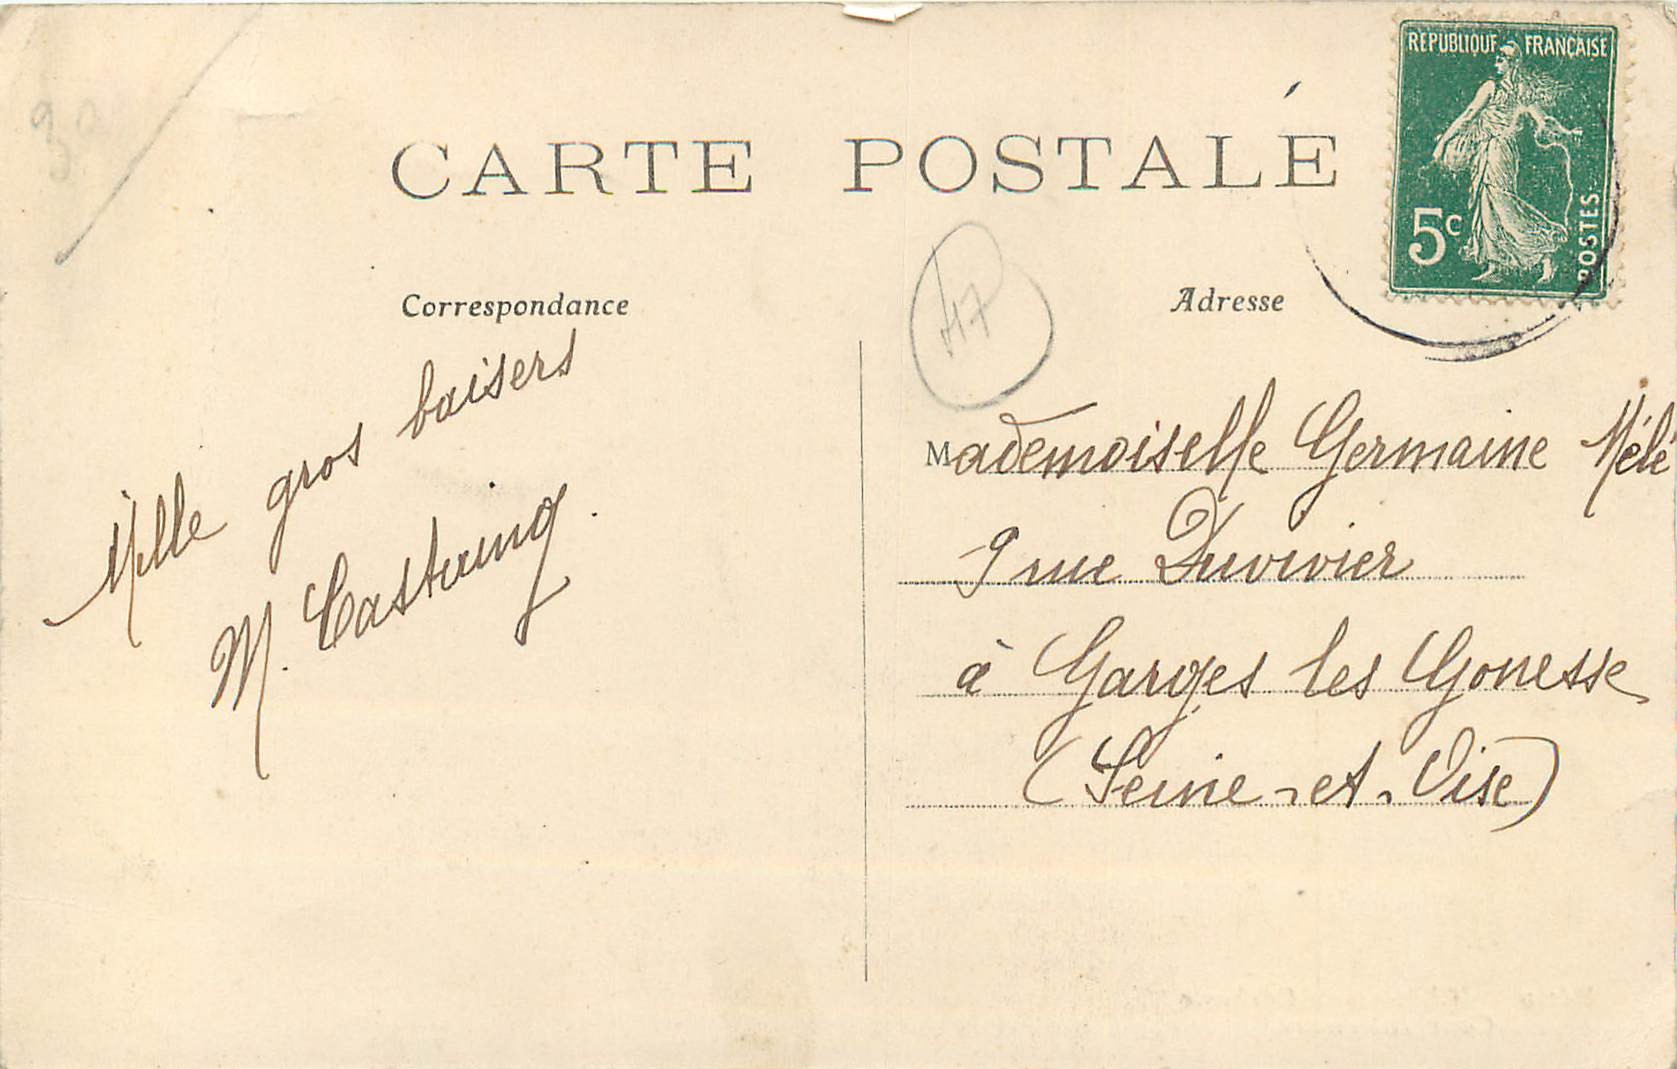 CARTE POSTALE
RÉPUBLIQUE FRANÇAISE
5c
POSTES
Correspondance
Mille gros baisers
M. Castaing.
47
Adresse
Mademoiselle Germaine Mélé
9 rue Duvivier
à Garges les Gonesse
(Seine-et-Oise)